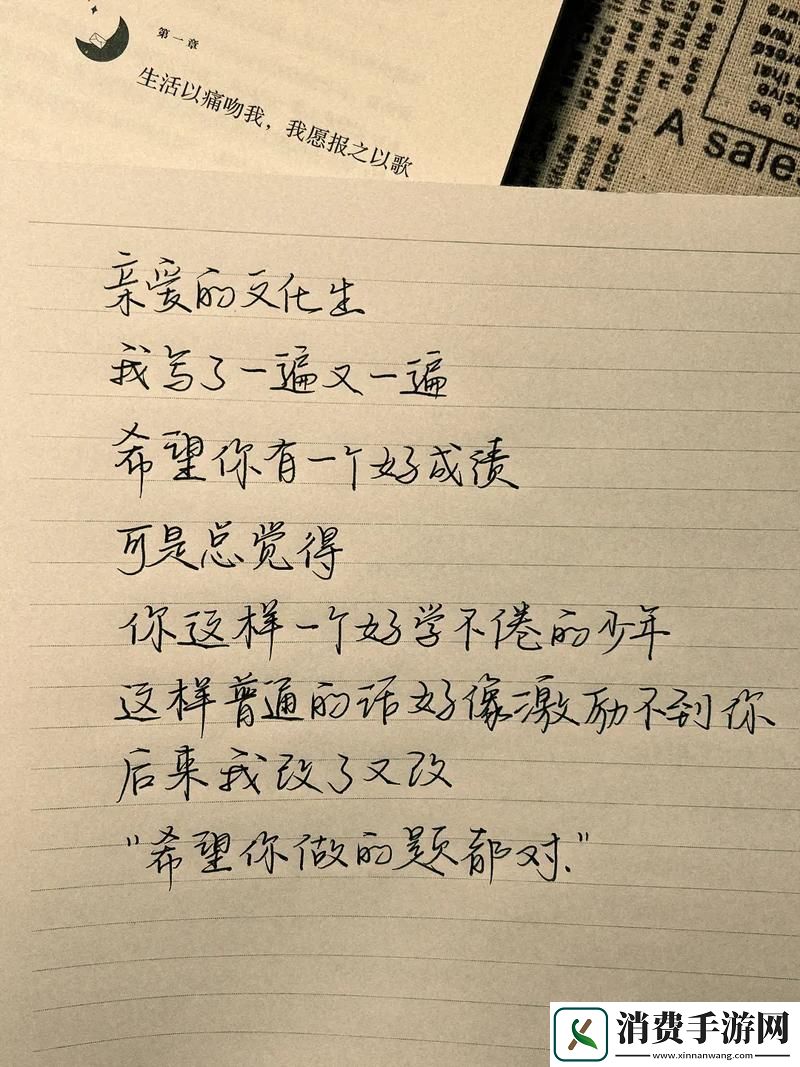 第一章
生活以痛吻我，我愿报之以歌
A sales
亲爱的文化生
我写了一遍又一遍
希望你有一个好成绩
可是总觉得
你这样一个好学不倦的少年
这样普通的话好像激励不到你
后来我改了又改
“希望你做的题都对.”
消费手游网
www.xinnanwang.com